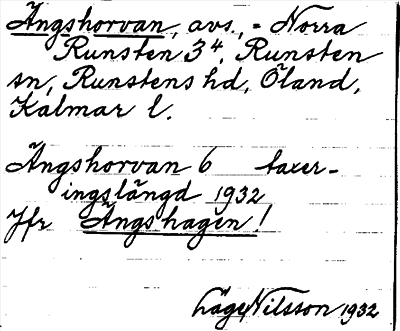 Ängshorvan, avs., = Norra
Runsten 3⁴, Runsten
sn, Runstens hd, Öland,
Kalmar l.
Ängshorvan 6 taxer-
ingslängd 1932
Jfr Ängshagen!
Nilsson 1932